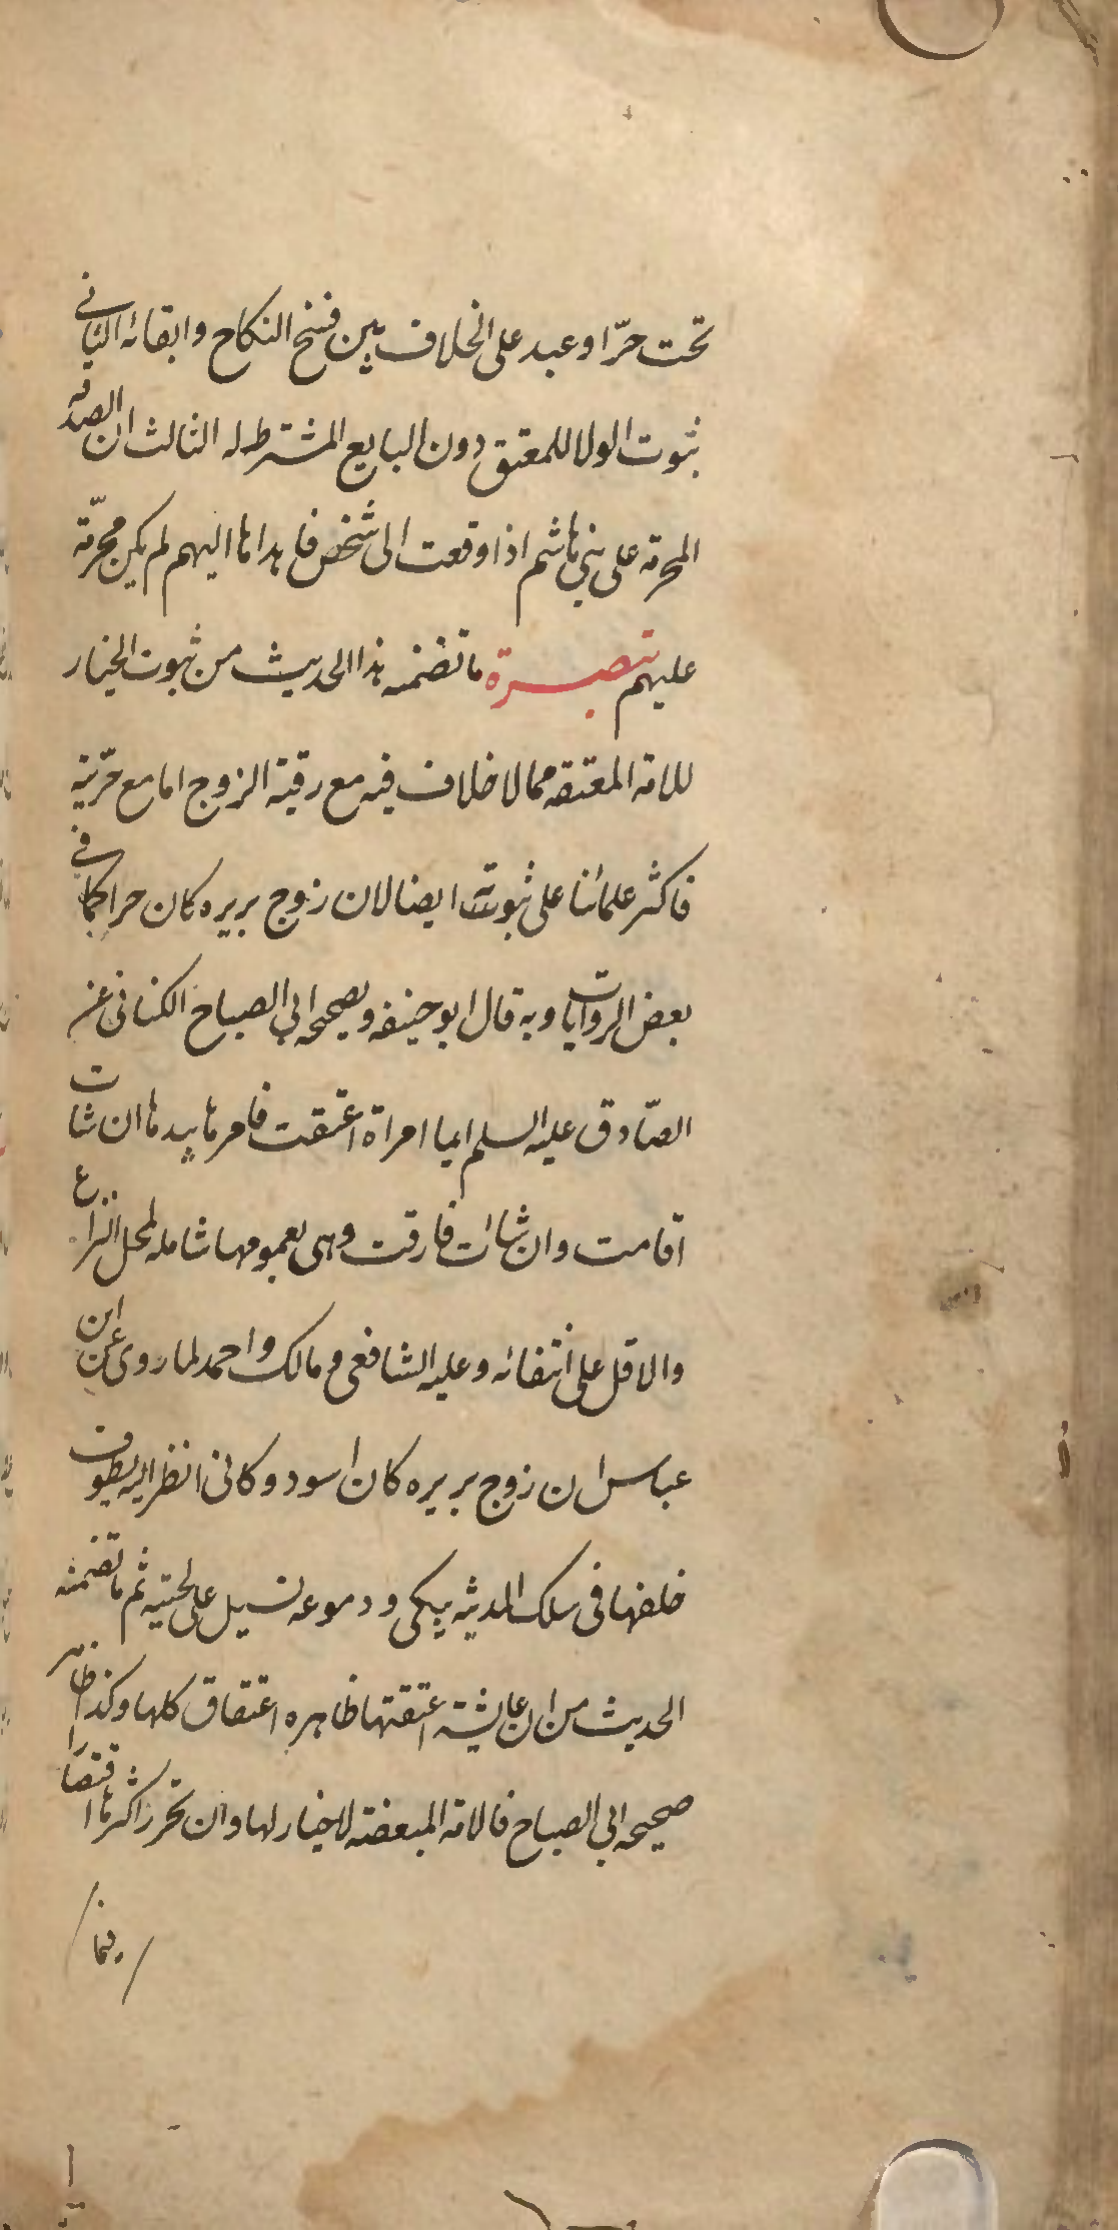 تحت حرّ او عبد على الخلاف بين فسخ النكاح وابقائه الثاني
ثبوت الولا للمعتق دون البايع المشترط له الثالث ان الصدقه
المحرمة على بني هاشم اذا وقعت الى شخص فاهداها اليهم لم يكن محرّمة
عليهم تبصرة ما تضمنه هذا الحديث من ثبوت الخيار
للامة المعتقه مما لا خلاف فيه مع رقية الزوج اما مع حرّيته
فاكثر علمائنا على ثبوته ايضا لان زوج بريره كان حرا كما في
بعض الروايات وبه قال ابو حنيفه وبصحيحه ابي الصباح الكناني عن
الصّادق عليه السلم ايما امراة اعتقت فامرها بيدها ان شات
اقامت وان شاات فارقت وهى بعمومها شامله لمحل النزاع
والاقل على انتفائه وعليه الشافعى ومالك واحمد لما روى عن ابن
عباس ان زوج بريره كان اسود وكانى انظر اليه يطوف
خلفها فى سكك المدينه يبكى ودموعه تسيل على لحيته ثم ما تضمنه
الحديث من ان عايشة اعتقتها ظاهره اعتقاق كلها وكذا ظاهر
صحيحه ابي الصباح فالامة المبعضة لا خيار لها وان تحرر اكثرها اقتصارا